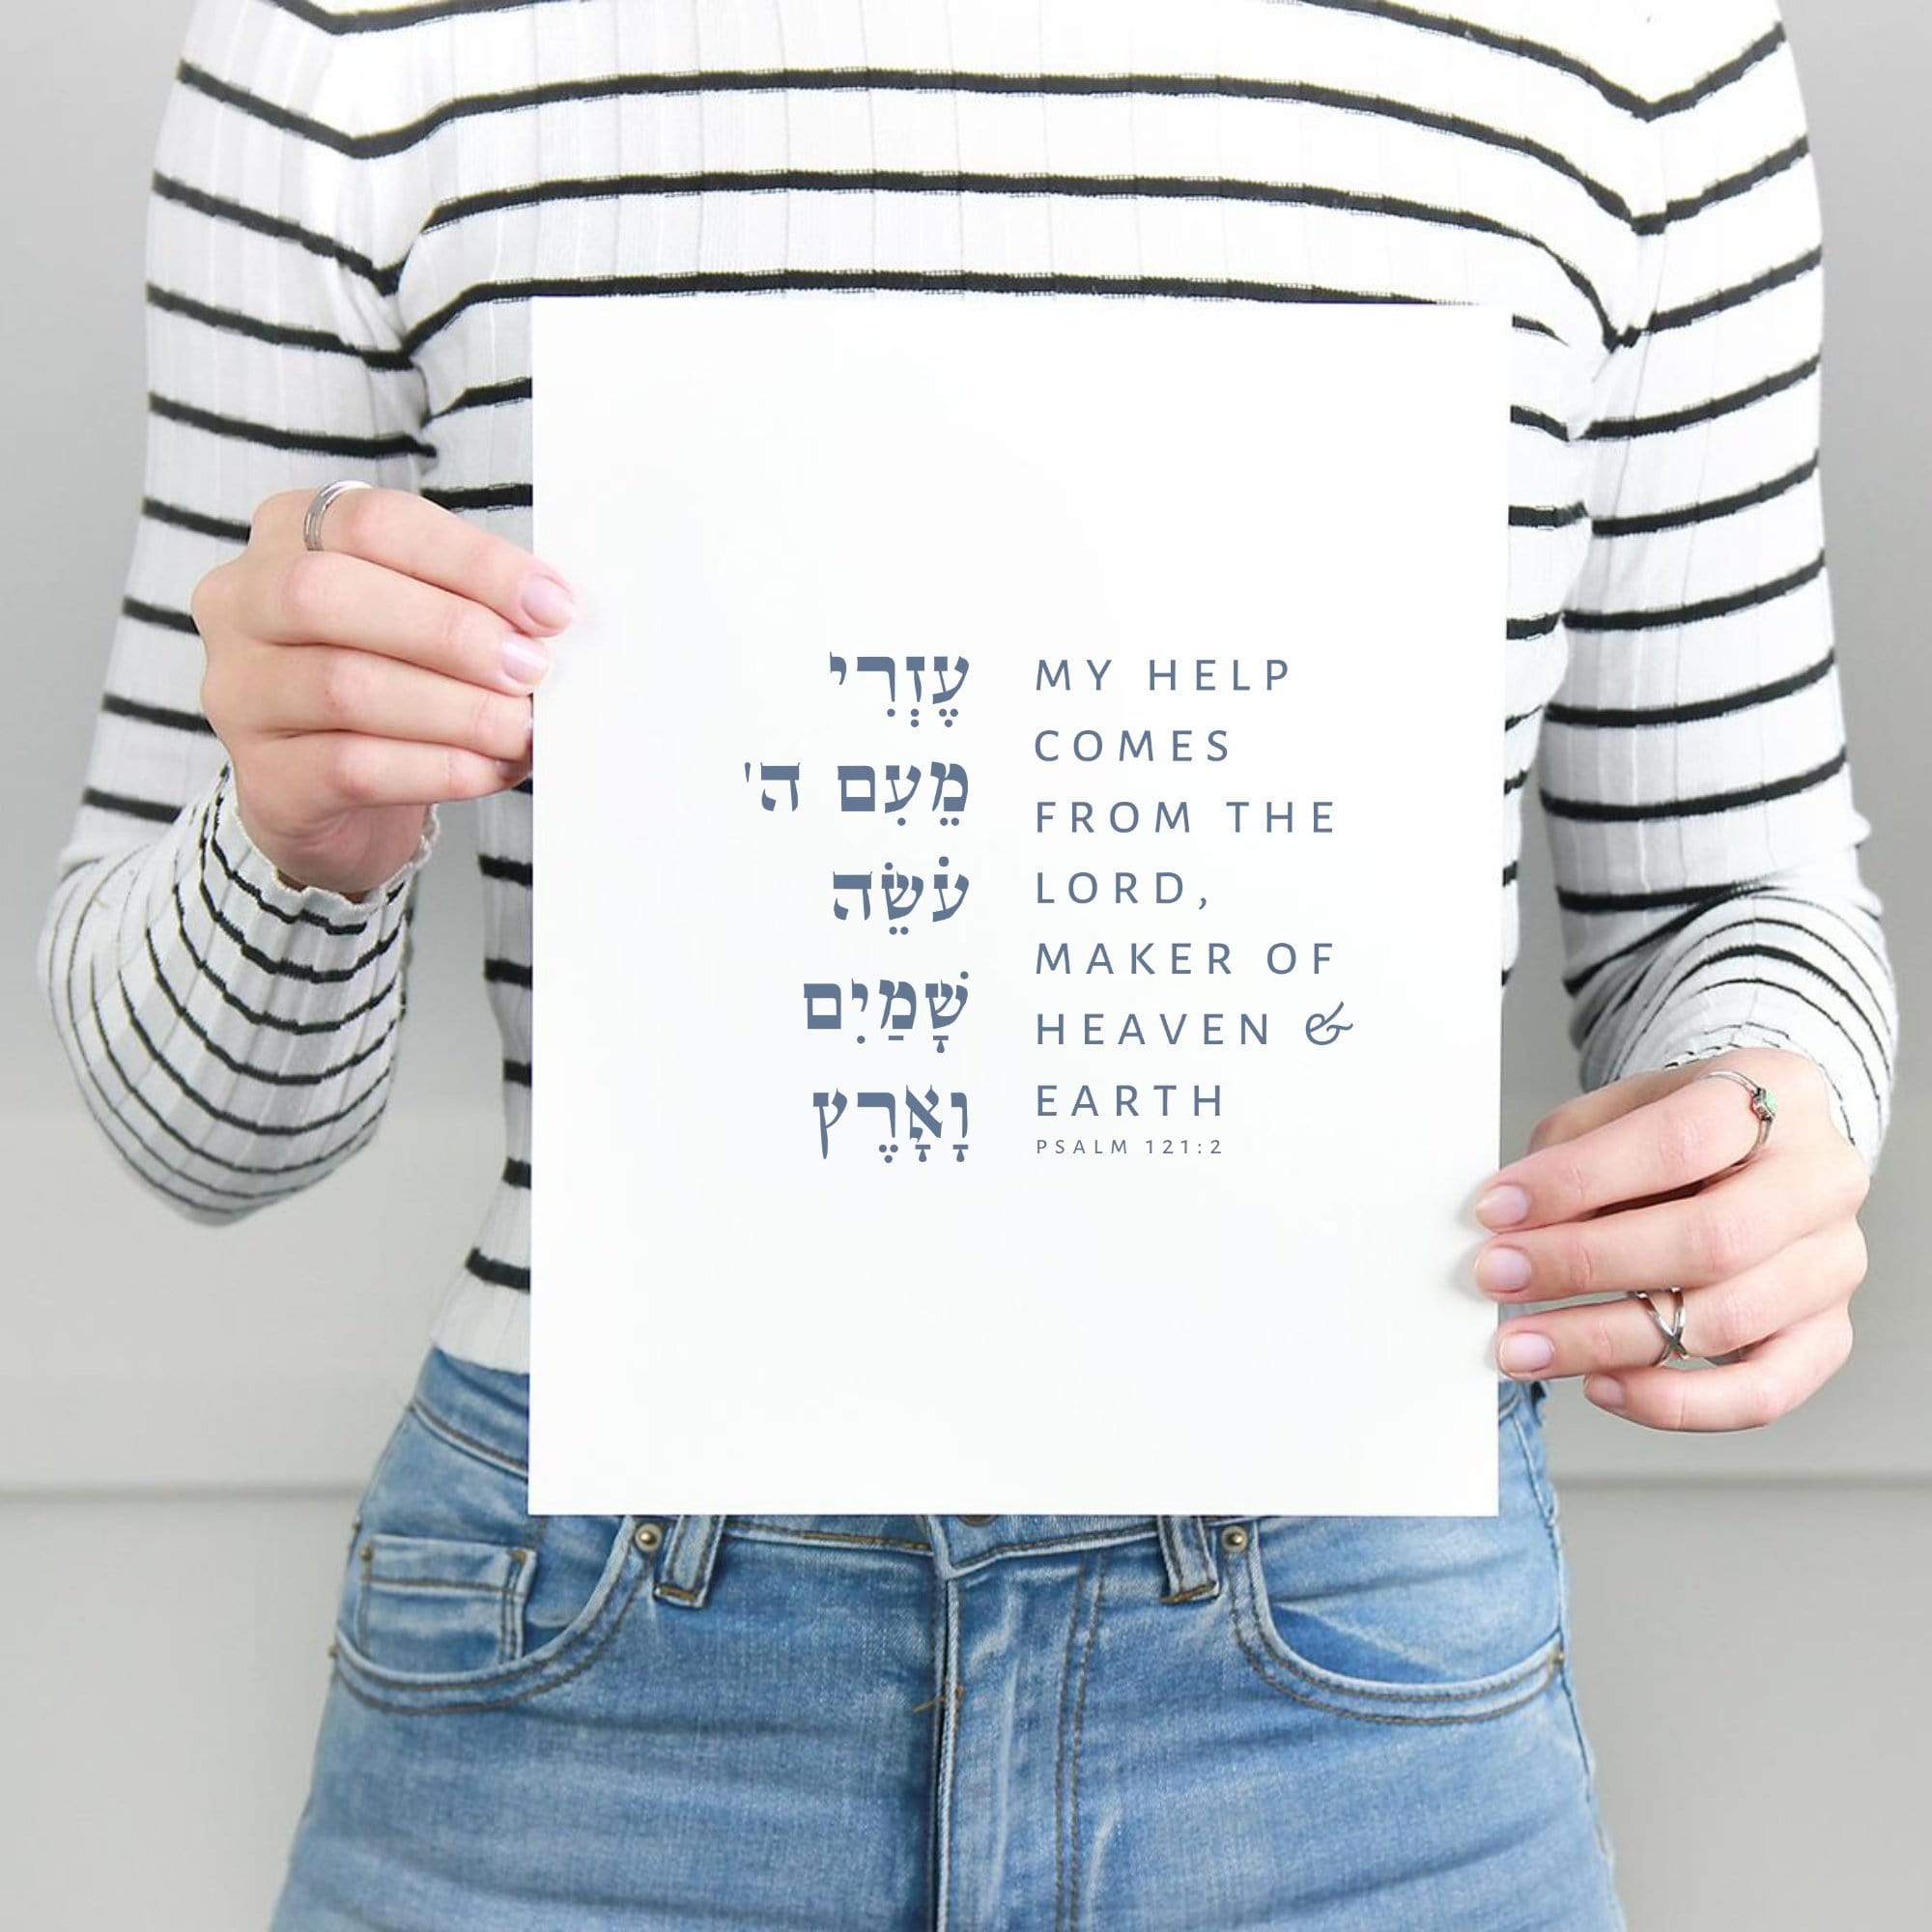 עֶזְרִי
מֵעִם ה'
עֹשֵׂה
שָׁמַיִם
וָאָרֶץ
MY HELP
COMES
FROM THE
LORD,
MAKER OF
HEAVEN &
EARTH
PSALM 121:2